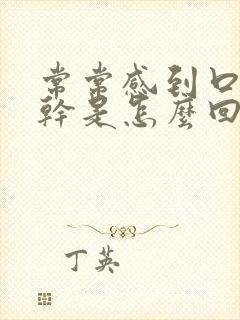 常常感到口
幹是怎麼回
丁英